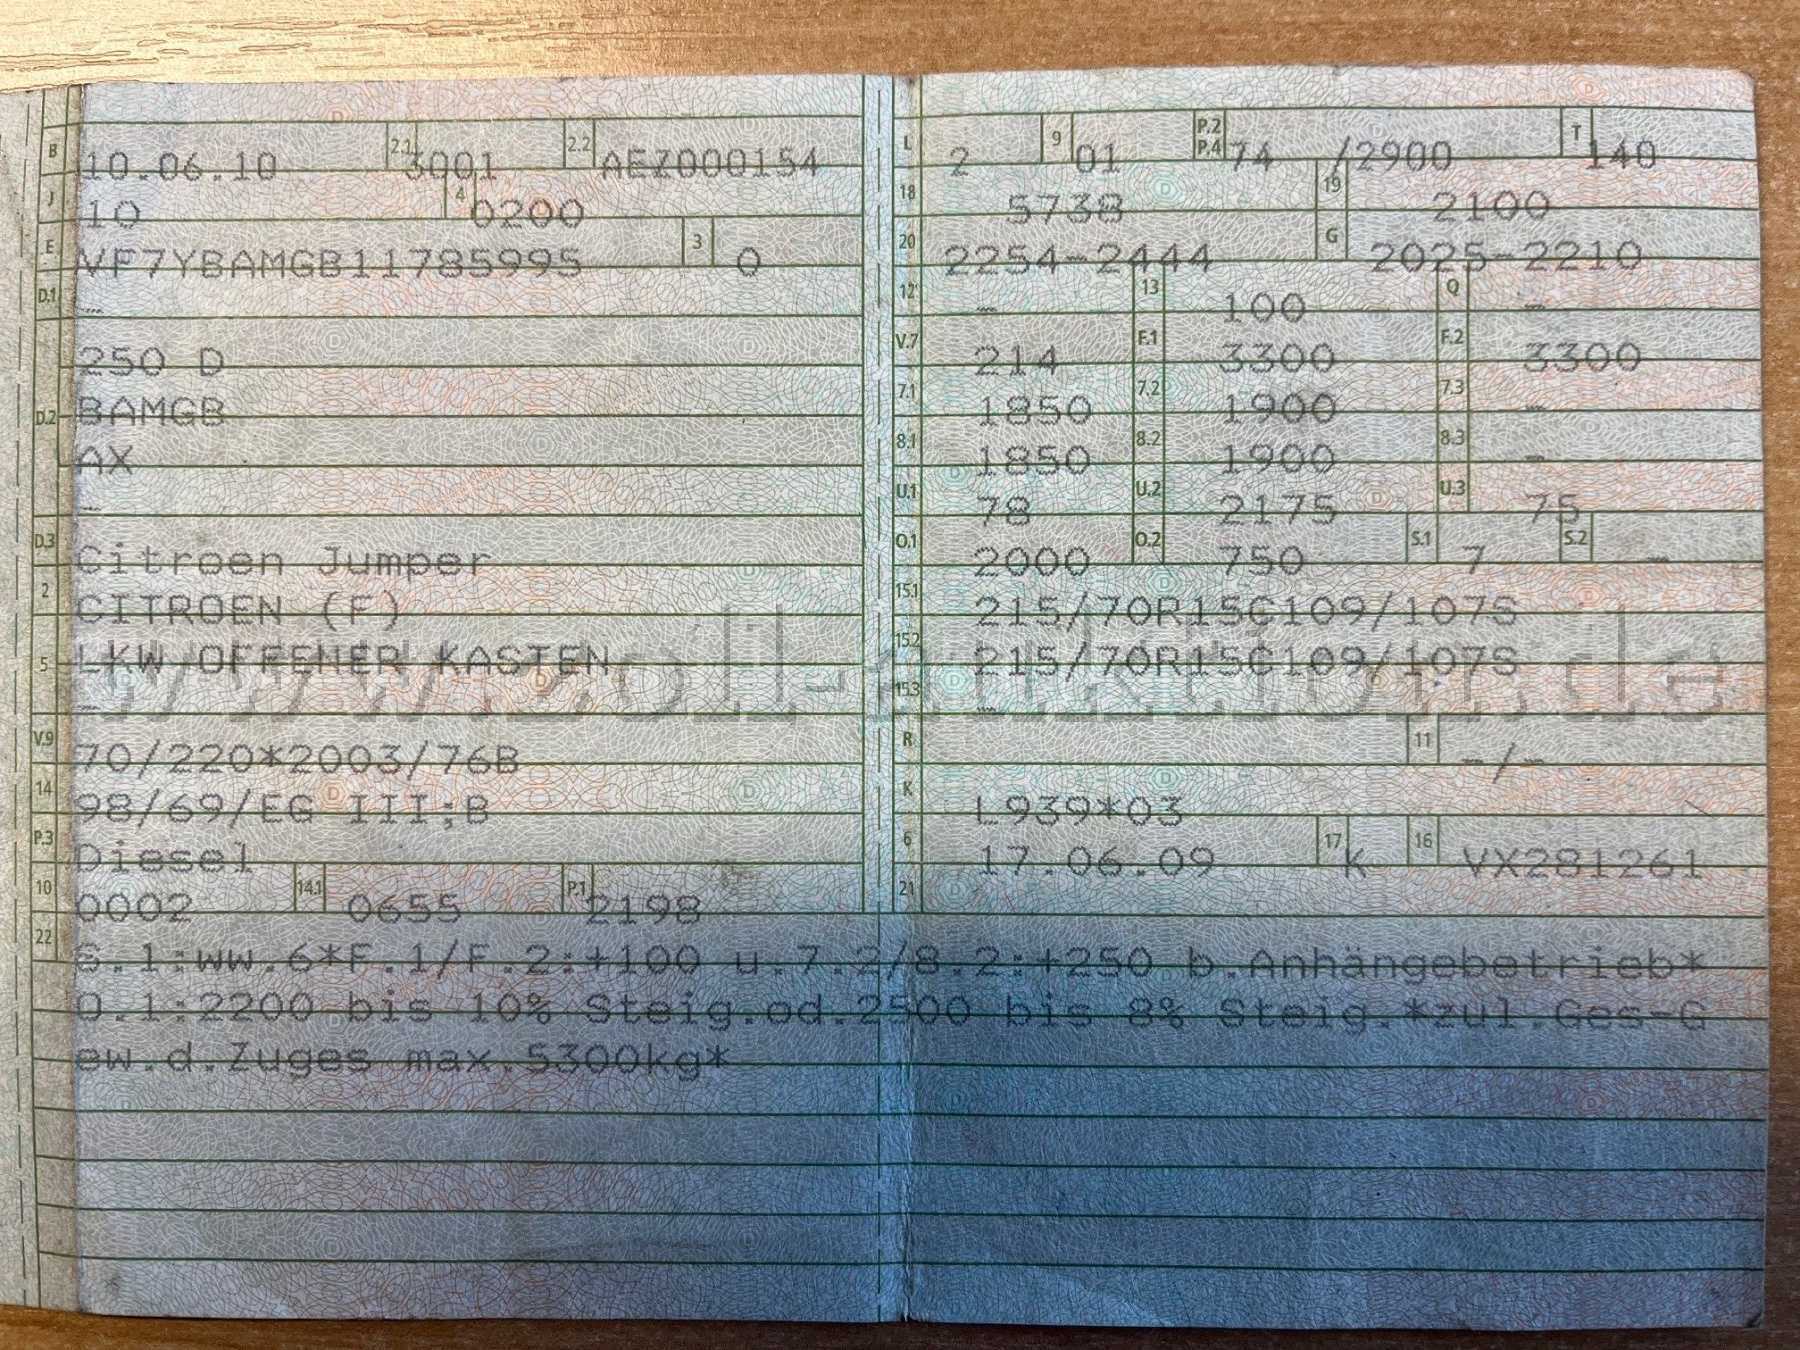 B 10.06.10 2.1 3001 2.2 AEZ000154
J 10 4 0200
E VF7YBAMGB11785995 3 0
D.1 -
250 D
D.2 BAMGB
AX
-
D.3 Citroen Jumper
2 CITROEN (F)
5 LKW OFFENER KASTEN
-
V.9 70/220*2003/76B
14 98/69/EG III;B
P.3 Diesel
10 0002 14.1 0655 P.1 2198
L 2 9 01 P.2 P.4 74 /2900 T 140
18 5738 19 2100
20 2254-2444 G 2025-2210
12 - 13 100 Q -
V.7 214 F.1 3300 F.2 3300
7.1 1850 7.2 1900 7.3 -
8.1 1850 8.2 1900 8.3 -
U.1 78 U.2 2175 U.3 75
O.1 2000 O.2 750 S.1 7 S.2 -
15.1 215/70R15C109/107S
15.2 215/70R15C109/107S
15.3 -
R 11 -/-
K L939*03
6 17.06.09 17 K 16 VX281261
21
22 S.1:ww.6*F.1/F.2:+100 u.7.2/8.2:+250 b.Anhängebetrieb*
O.1:2200 bis 10% Steig.od.2500 bis 8% Steig.*zul.Ges-G
ew.d.Zuges max.5300kg*
www.zoll-auktion.de